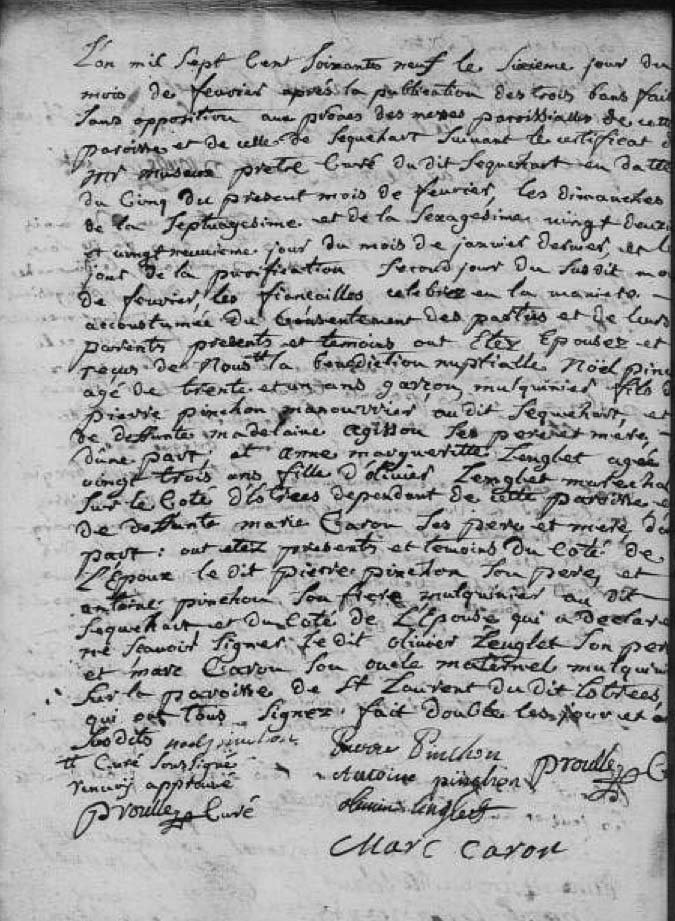 L'on mil sept cent soixante neuf le sixieme jour du
mois de fevrier aprés la publication des trois bans fait
sans opposition aux prônes des messes paroissialles de cette
paroisse et de celle de Sequehart suivant le certificat d
mr museux pretre Curé du dit Sequehart en datte
du cinq du present mois de fevrier, les dimanches
de la septuagesime et de la sexagesime vingt deuxi
et vingt neuvieme jour du mois de janvier dernier, et le
jour de la purification second jour du susdit mo
de fevrier, les fiancailles celebrez en la maniere
accoustumée du consentement des parties et de leurs
parents presents et temoins ont Etez Epousez et
reçus de Nous tt la benediction nuptialle Noël pinc
agé de trente et un ans garçon, mulquinier fils d
pierre pinchon manouvrier au dit Sequehart, et
de deffunte madelaine agissou ses pere et mere,
d'une part, et anne margueritte Lenglet agée
vingt trois ans fille d'olivier Lenglet marechal
sur le Coté d'Estrées dependant de cette paroisse e
de deffunte marie Caron ses pere et mere, d'au
part: ont etez presents et temoins du coté de
L'Epoux le dit pierre pinchon son pere, et
antoine pinchon son frere mulquinier au dit
Sequehart et du coté de L'Epouse qui a declaré
ne scavoir signer le dit olivier Lenglet son per
et marc Caron son oncle maternel mulquin
sur la paroisse de St Laurent du dit Estrées,
qui ont tous signez fait double les jour et a
susdits noel pinchon
tt Curé soussigné
renvoy approuvé
Proullez Curé
Pierre Pinchon
Antoine pinchon
Proullez C
olivier Linglet
Marc Caron